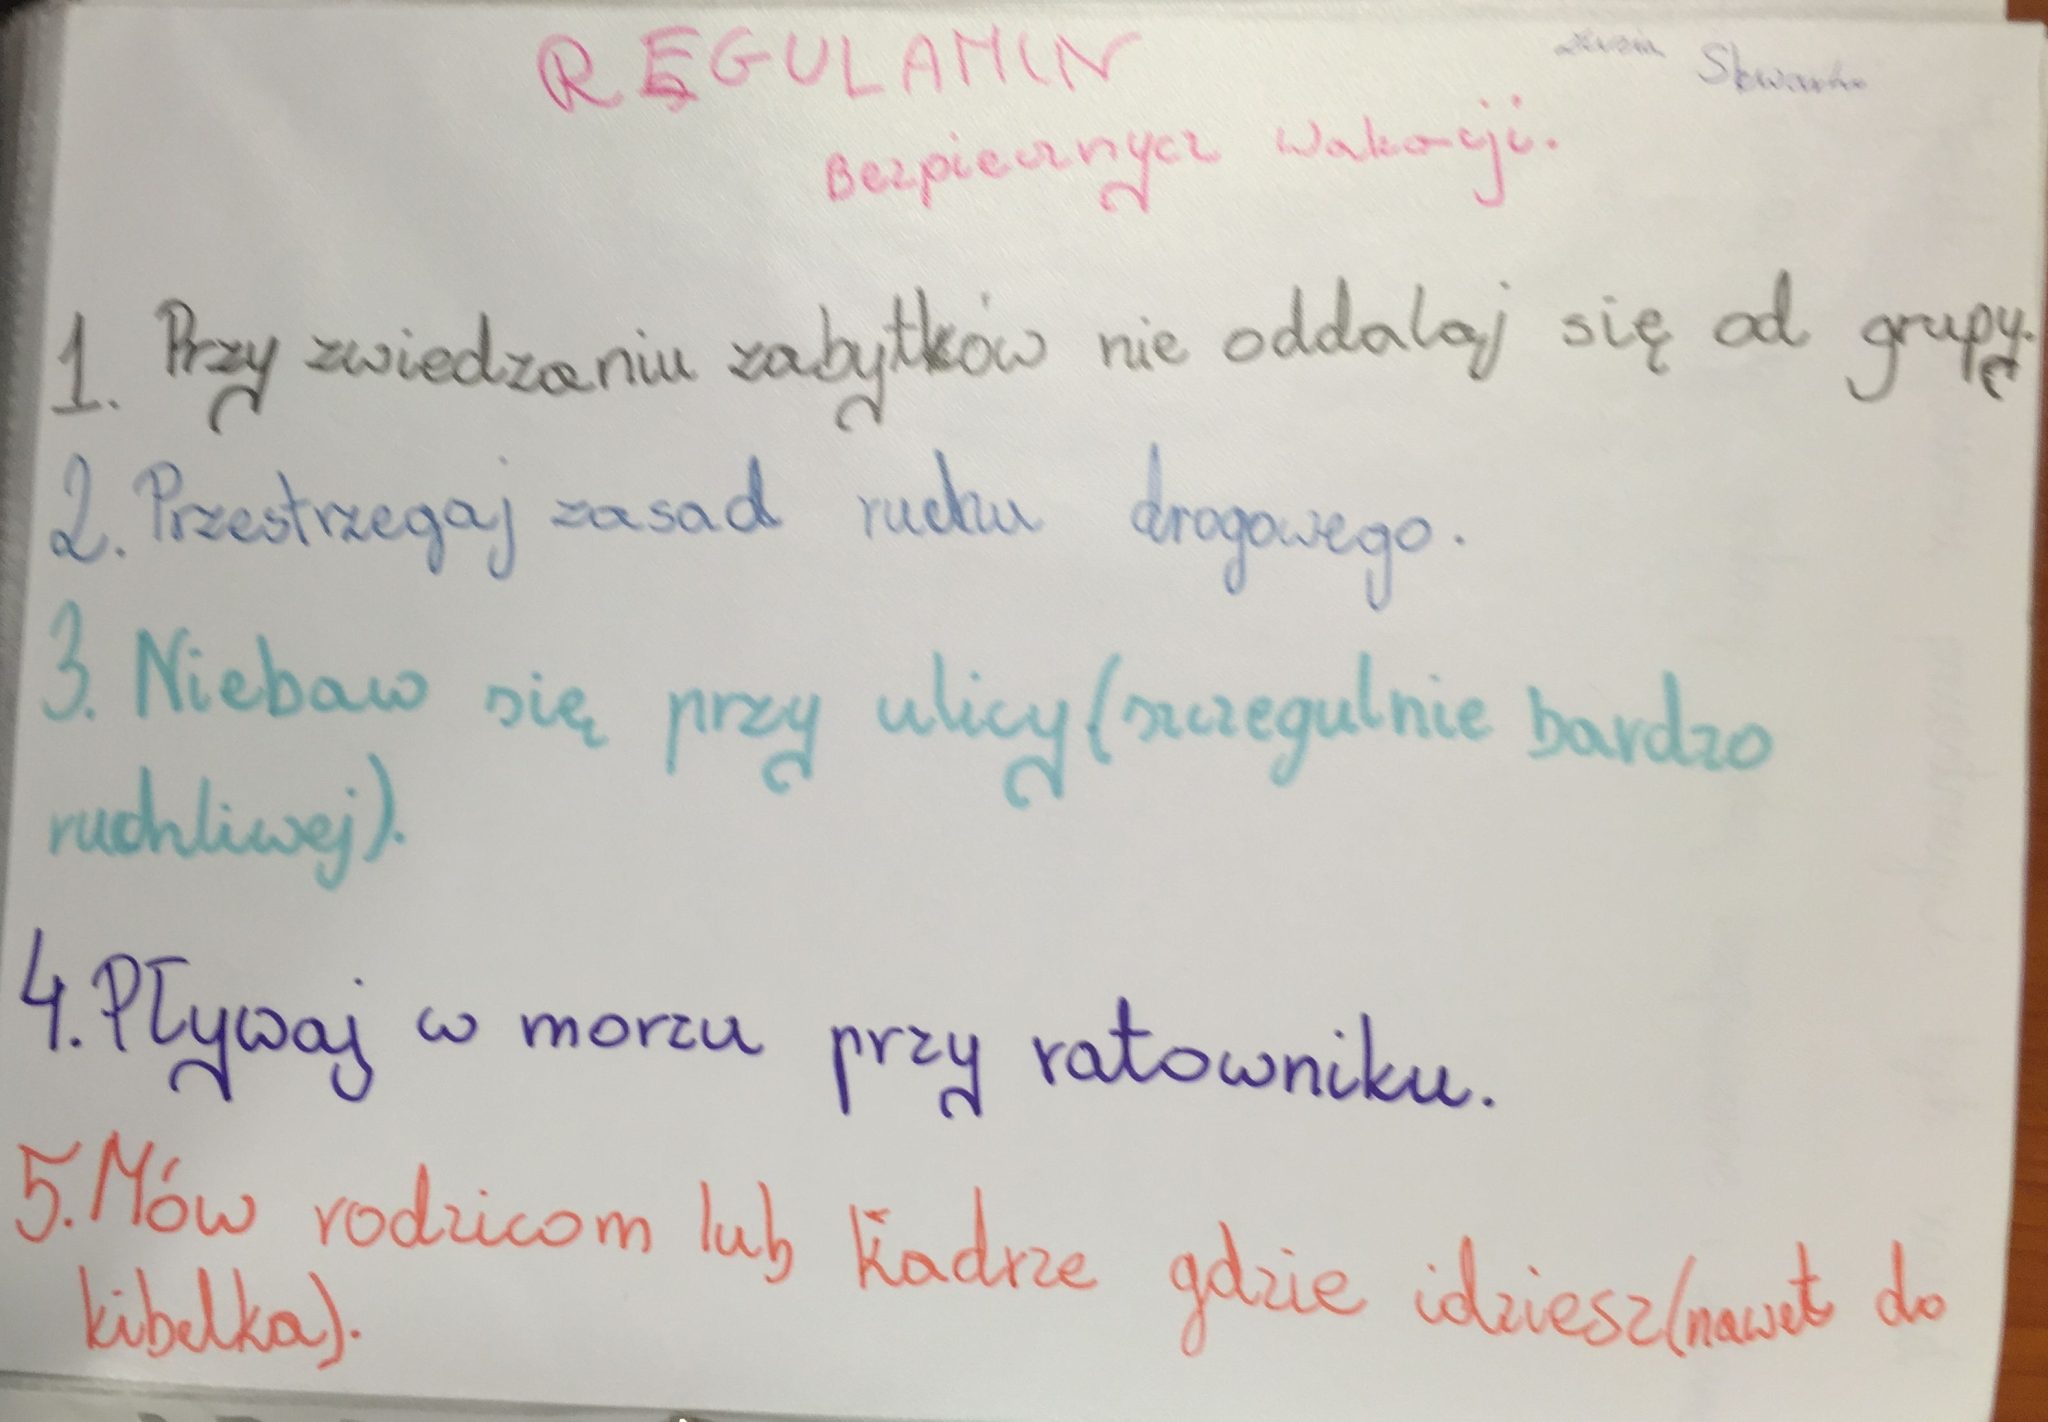 REGULAMIN
Zuzia
Bezpiecznycz wakacji.
1. Przy zwiedzaniu zabytków nie oddalaj się od grupy.
2. Przestrzegaj zasad ruchu drogowego.
3. Niebaw się przy ulicy (szczegulnie bardzo
ruchliwej).
4. Pływaj w morzu przy ratowniku.
5. Mów rodzicom lub kadrze gdzie idziesz (nawet do
kibelka).